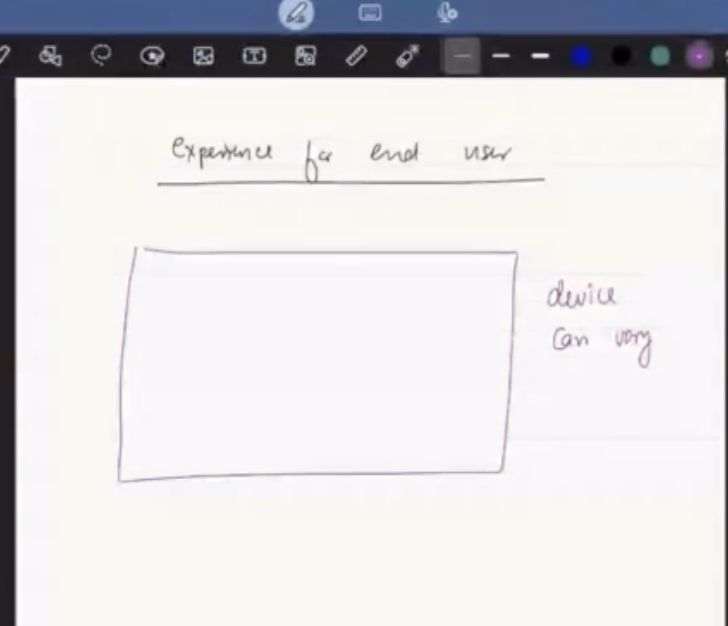 Experience for end user
device
can vary